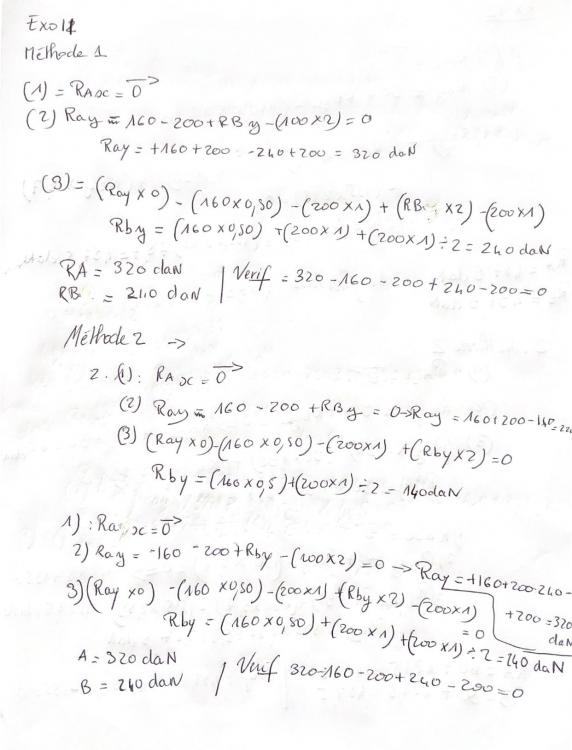 Exo 11
Méthode 1
(1) = RAx = 0
(2) Ray = 160 - 200 + RBy - (100 x 2) = 0
Ray = +160 + 200 - 240 + 200 = 320 daN
(3) = (Ray x 0) - (160 x 0,50) - (200 x 1) + (RB x 2) - (200 x 1)
Rby = (160 x 0,50) + (200 x 1) + (200 x 1) ÷ 2 = 240 daN
RA = 320 daN | Verif = 320 - 160 - 200 + 240 - 200 = 0
RB = 240 daN
Méthode 2 →
2. (1): RAx = 0
(2) Ray = 160 - 200 + RBy = 0 → Ray = 160 + 200 - 140 = 220
(3) (Ray x 0) - (160 x 0,50) - (200 x 1) + (Rby x 2) = 0
Rby = (160 x 0,5) + (200 x 1) ÷ 2 = 140 daN
1) : Rax = 0
2) Ray = -160 - 200 + Rby - (100 x 2) = 0 → Ray = +160 + 200 - 240 -
+200 = 320 daN
3) (Ray x 0) - (160 x 0,50) - (200 x 1) + (Rby x 2) - (200 x 1) = 0
Rby = (160 x 0,50) + (200 x 1) + (200 x 1) ÷ 2 = 240 daN
A = 320 daN | Verif 320 - 160 - 200 + 240 - 200 = 0
B = 240 daN